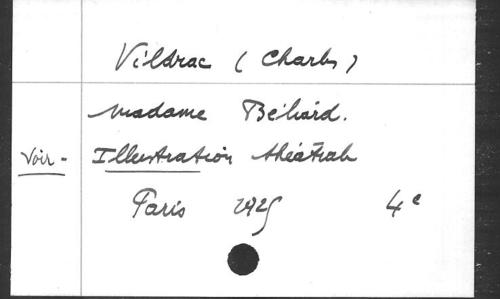 Vildrac (Charles)
Madame Béliard.
Voir - Illustration théâtrale
Paris 1925 4º